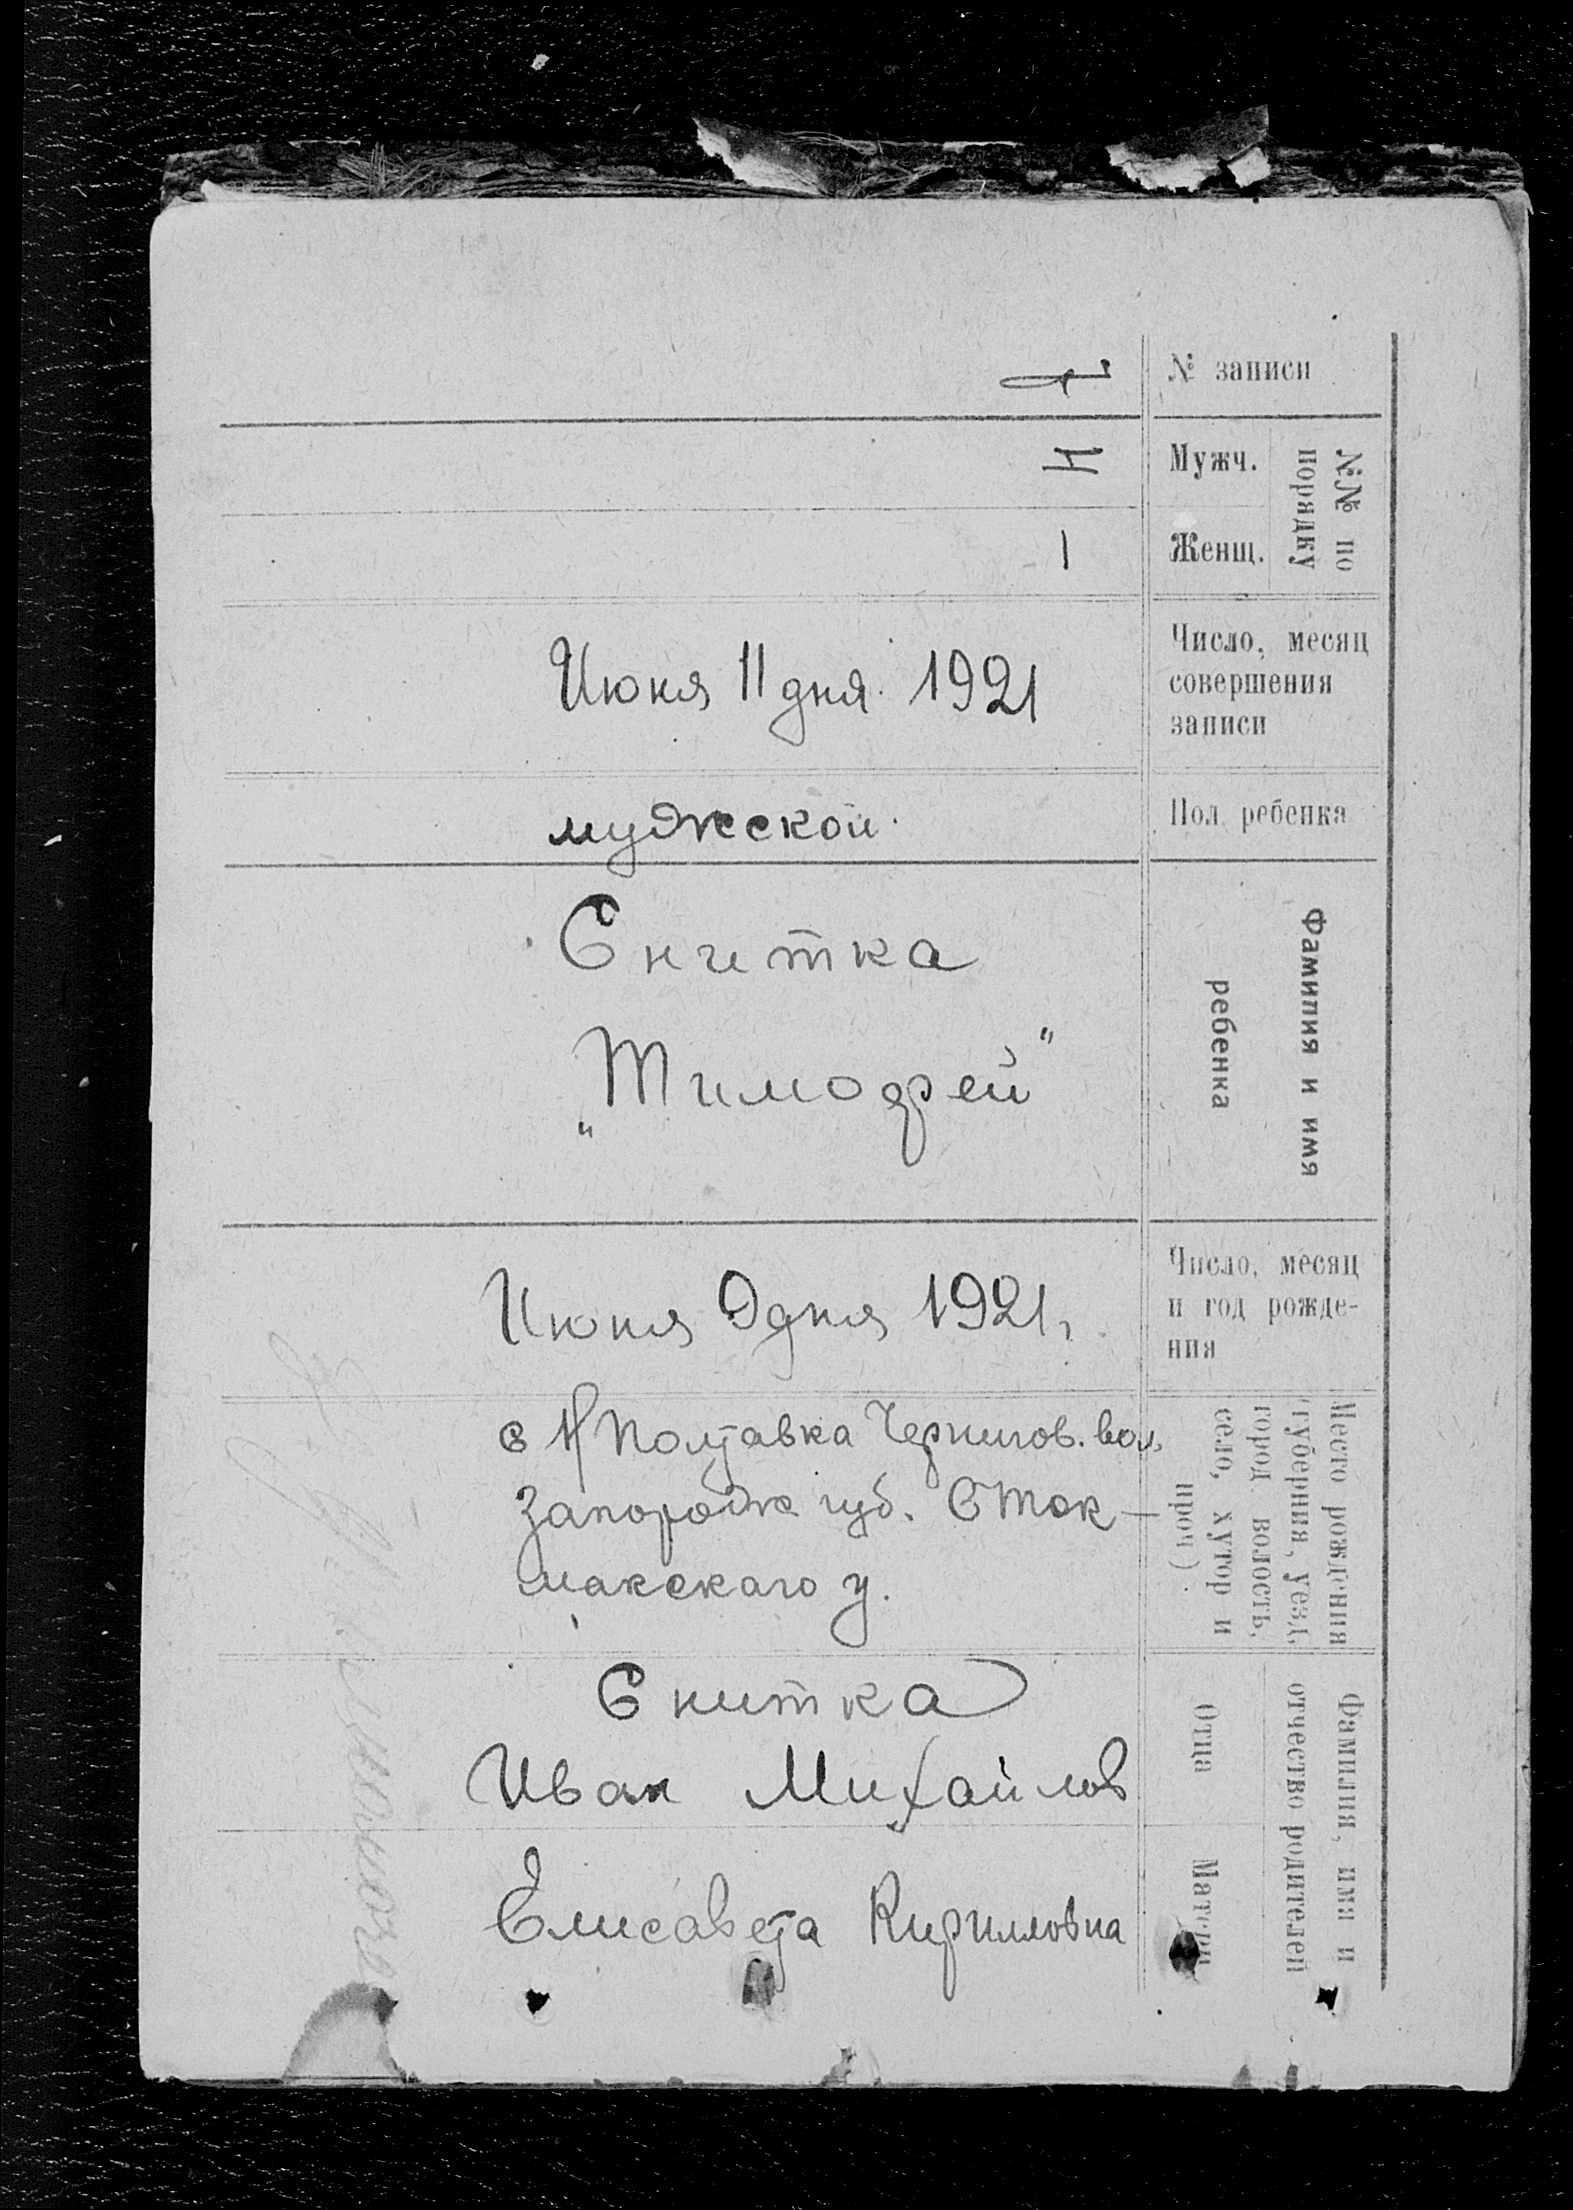 № записи
№№ по порядку
Мужч.
Женщ.
Число, месяц
совершения
записи
Июня 11 дня 1921
Пол ребенка
мужской.
Фамилия и имя
ребенка
Снитка
„Тимофей"
Число, месяц
и год рожде-
ния
Июня 9 дня 1921,
Место рождения
(губерния, уезд,
город волость,
село, хутор и
проч)
с Н/Полтавка Чернигов. вол,
Запорож губ. Б Ток-
макскаго у.
Фамилия, имя и
отчество родителей
Отца
Снитка
Иван Михайлов
Матери
Елисавета Кирилловна